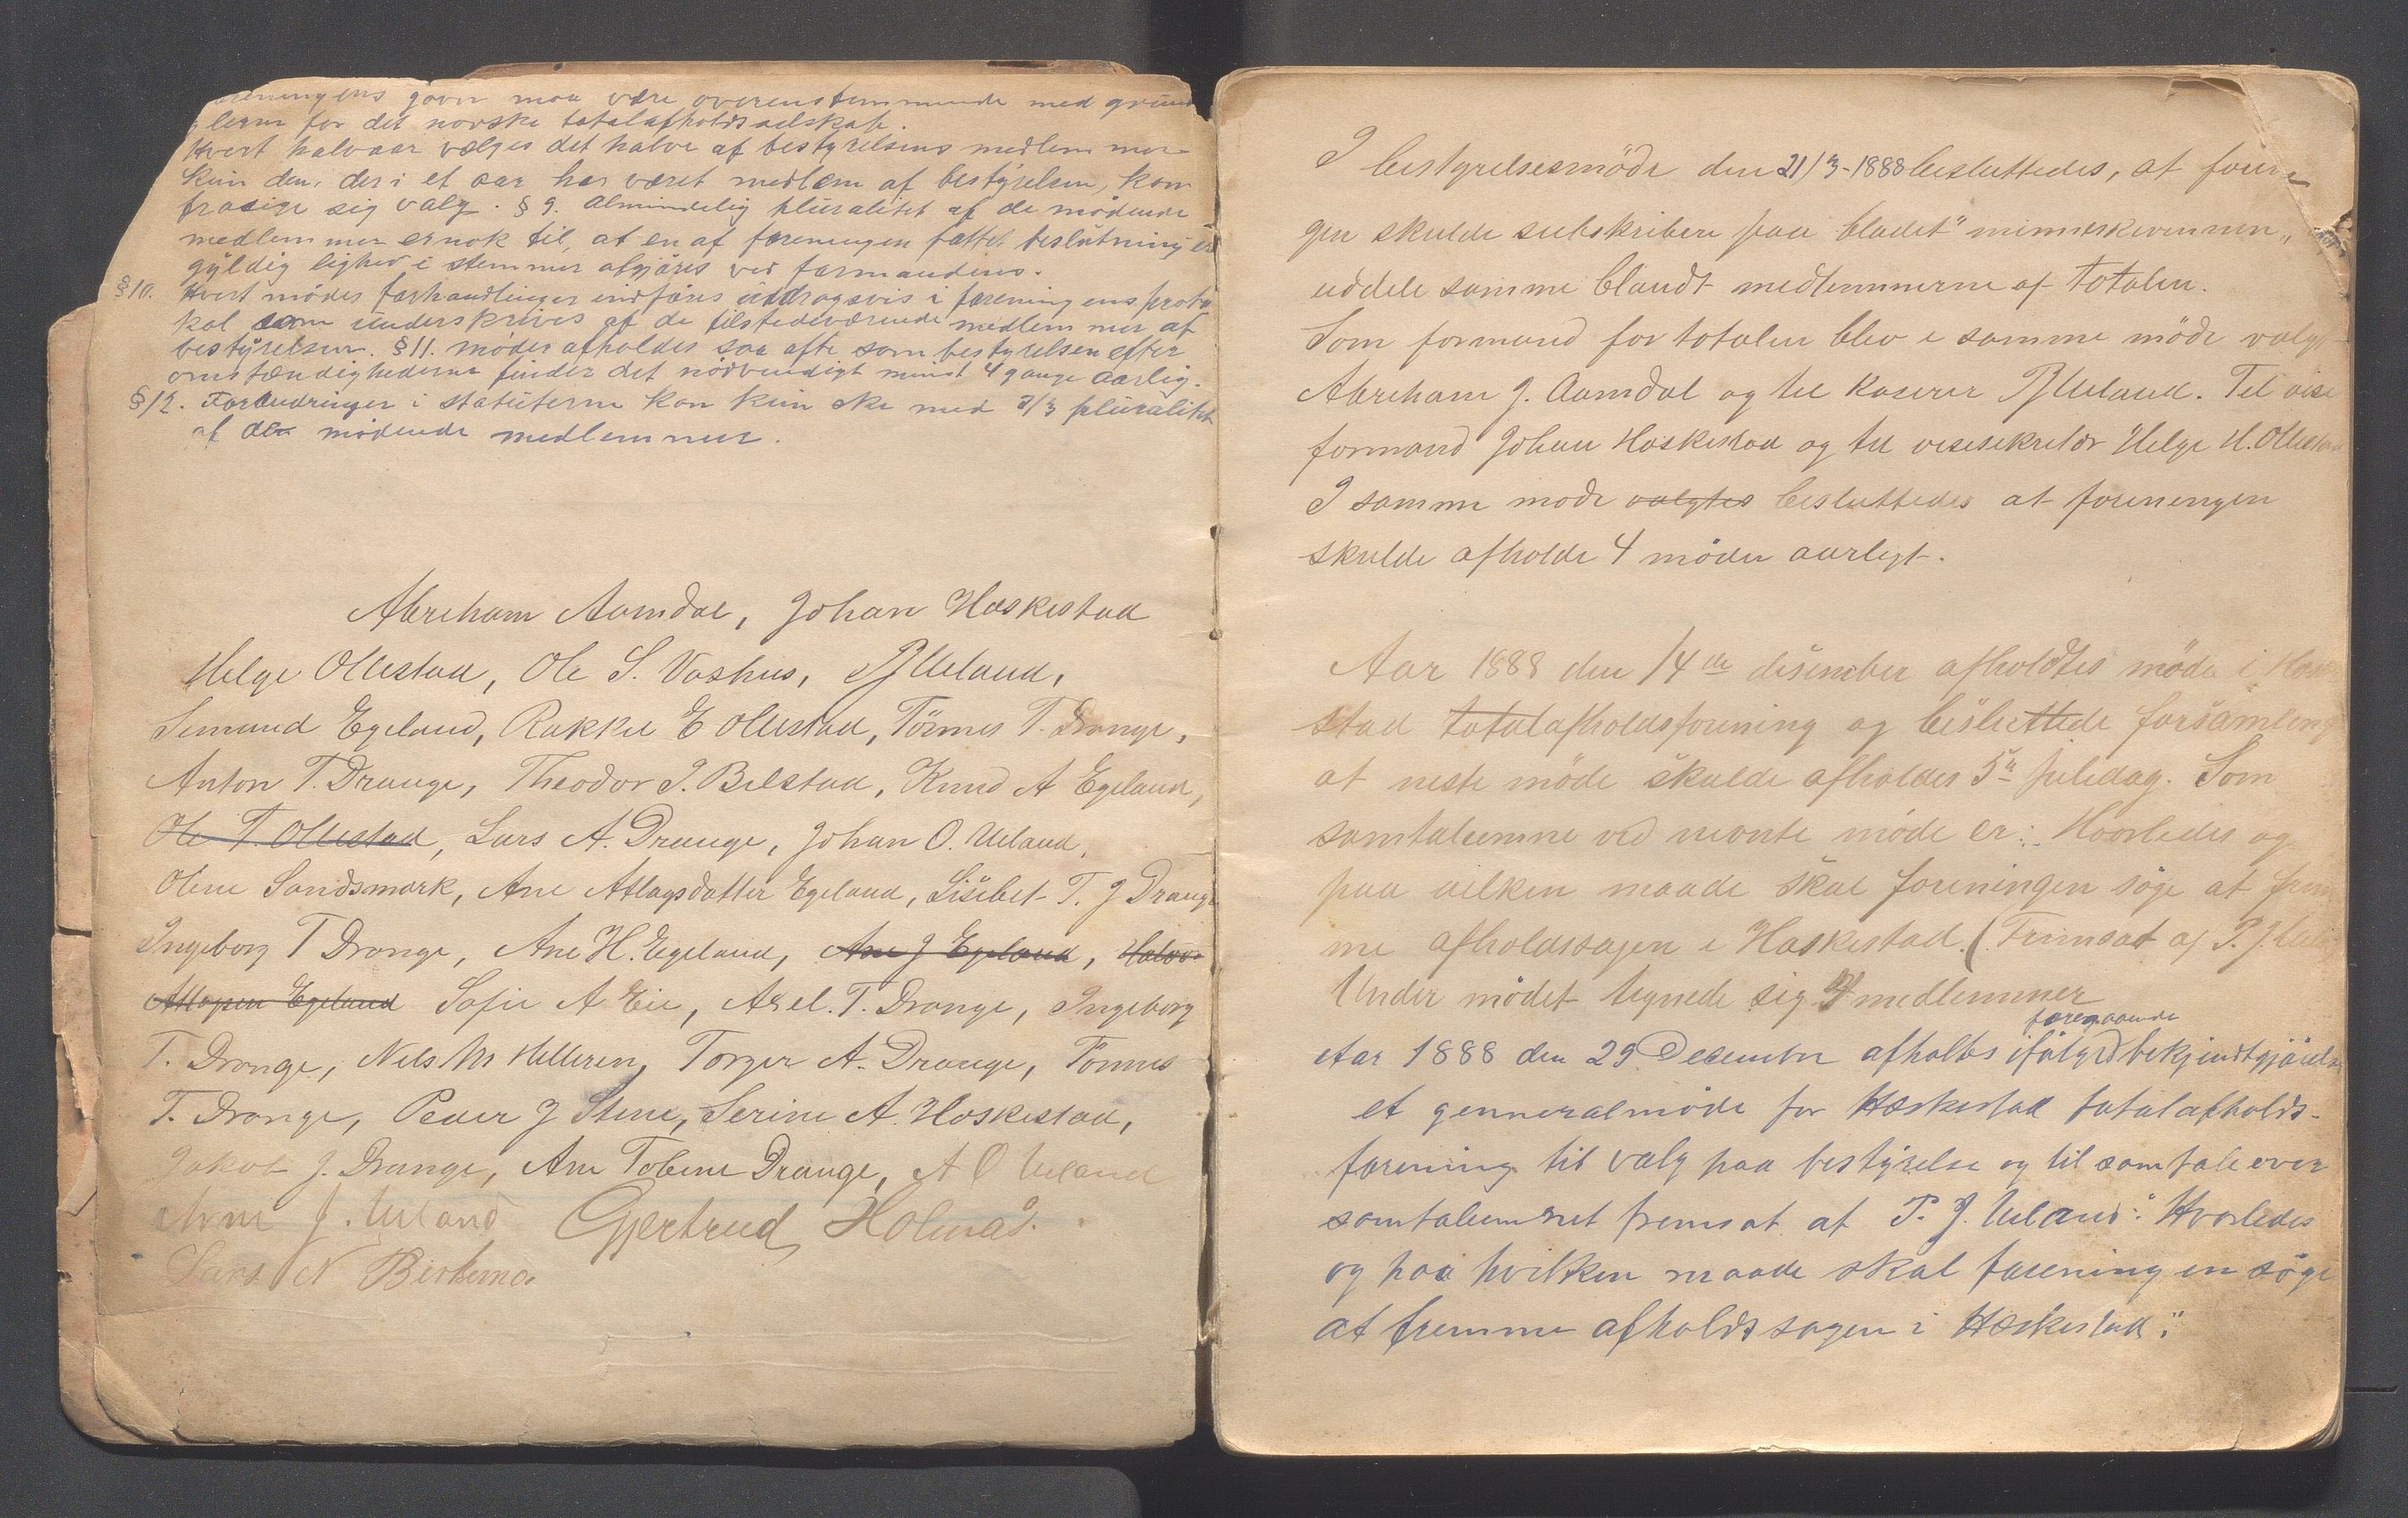 gavn maa være overensstemmende med grund
lerne for det norske totalafholdsselskab.
Hvert halvaar vælges det halve af bestyrelsens medlemmer
kun den, der i et aar har været medlem af bestyrelsen, kan
frasige sig valg. § 9. Almindelig pluralitet af de mødende
medlemmer er nok til, at en af foreningen fattet beslutning er
gyldig lighed i stemmer afgjøres ved formandens.
§ 10. Hvert mødes forhandlinger indføres uddragsvis i foreningens proto
kol som underskrives af de tilstedeværende medlemmer af
bestyrelsen. § 11. møder afholdes saa ofte som bestyrelsen efter
omstændighederne finder det nødvendigt minst 4 gange aarlig.
§ 12. Forandringer i statuterne kan kun ske med 2/3 pluralitet
af de mødende medlemmer.
Abreham Aamdal, Johan Haskestad
Helge Ollestad, Ole S. Vashus, P J Ueland,
Semund Egeland, Rakkel E Ollestad, Tönnes T. Drange,
Anton T. Drange, Theodor J. Bilstad, Knud A Egeland,
Ole T. Ollestad, Lars A. Drange, Johan O. Ueland,
Olene Sandsmark, Ane Atlagsdatter Egeland, Lisebet T. J Drange
Ingeborg T Drange, Ane H. Egeland, Ane J Egeland, Halvor
Atlagsen Egeland Sofie A Eie, Axel. T. Drange, Ingeborg
T. Drange, Nels M Helleren, Torger A. Drange, Tönnes
T. Drange, Peder J Stene, Serine A. Haskestad,
Jakob J. Drange, Ane Tobine Drange, A O Ueland
Arne J. Ueland Gjertrud Holmas.
Lars N
I bestyrelsesmöde den 21/3-1888 besluttedes, at forenin
gen skulde subskribere paa bladet "menneskevennen"
uddele samme blandt medlemmerne af Totalen.
Som formand for totalen blev i samme möde valgt
Abreham J. Aamdal og til Kaserer P J Ueland. Til vise
formand Johan Haskestad og til visesekretær Helge H. Ollestad
I samme möde valgtes besluttedes at foreningen
skulde afholde 4 möder aarligt.
Aar 1888 den 14de desember afholdtes möde i Has
stad totalafholdsforening og besluttede forsamling
at neste möde skulde afholdes 5te juledag. Som
samtaleemne ved nevnte möde er: Hvorledes og
paa vilken maade skal foreningen söge at frem
me afholdssagen i Haskestad. (Fremsat af P. J. Uelan
Under mödet tegnede sig 4 medlemmer
foregaaende
Aar 1888 den 29 Desember afholtes ifølge bekjendtgjörelse
et genneralmöde for Hæskestad totalafholds-
forening til valg paa bestyrelse og til samtale over
samtaleemnet fremsat af P. J. Ueland: "Hvorledes
og paa hvilken maade skal foreningen söge
at fremme afholdssagen i Hæskestad".